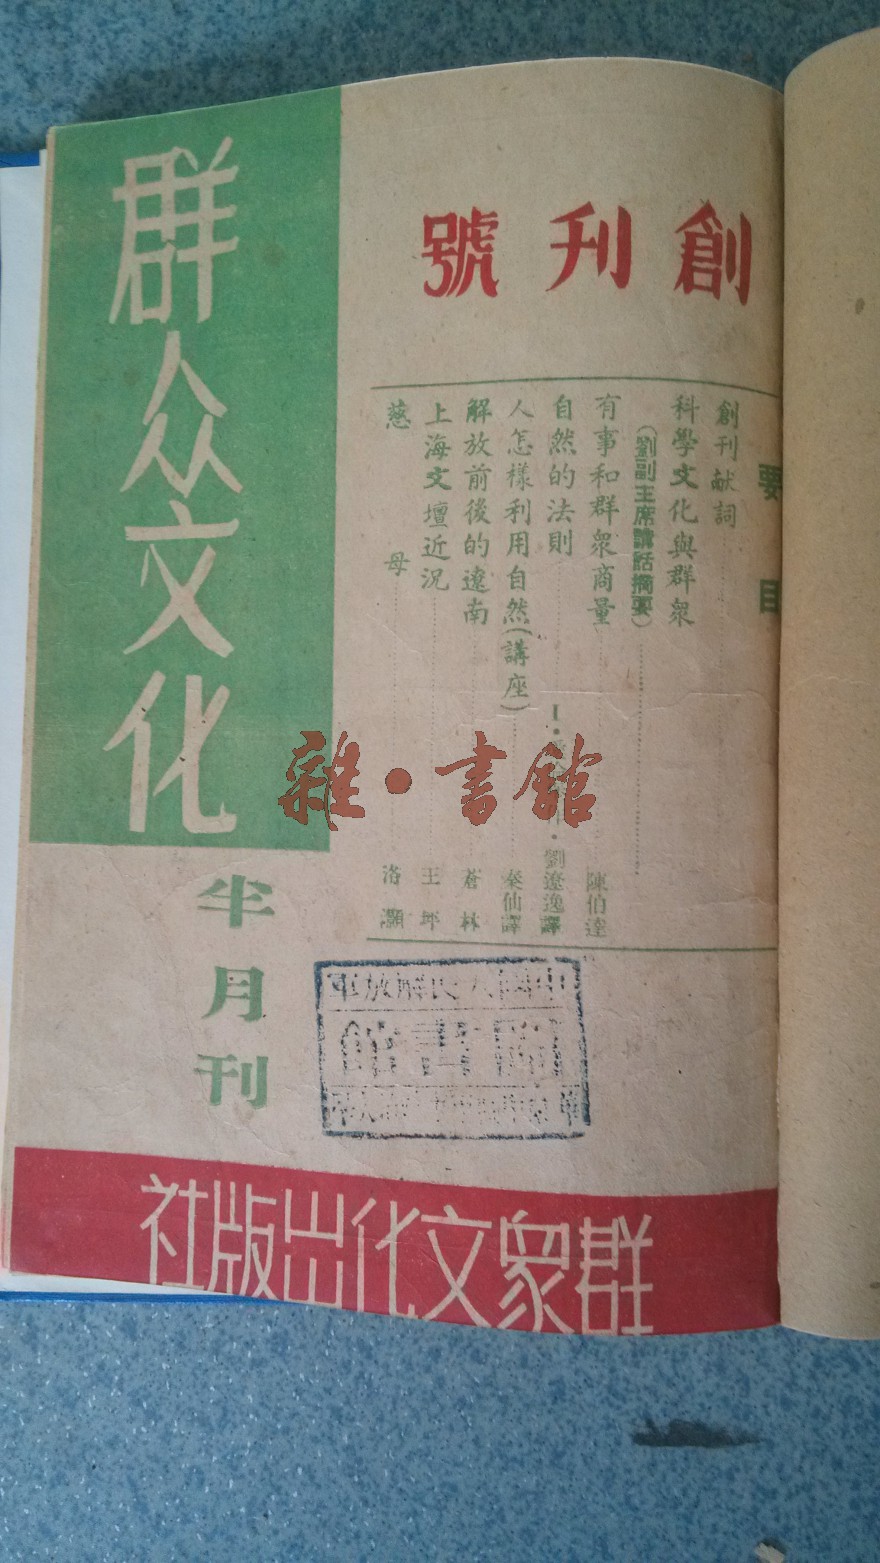 群众文化
半月刊
創刊號
要目
創刊献詞
科學文化與群衆
(劉副主席講話摘要)
有事和群衆商量 陳伯達
自然的法則 劉遼逸譯
人怎樣利用自然(講座) 秦仙譯
解放前後的遼南 蒼林
上海文壇近況 王坪
慈母 洛灝
雜·書館
群衆文化出版社